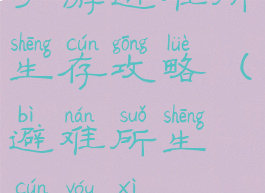 游避难所
shēng cún gōng lüè
生存攻略（
bì nán suǒ shēng
避难所生
cún yóu xì